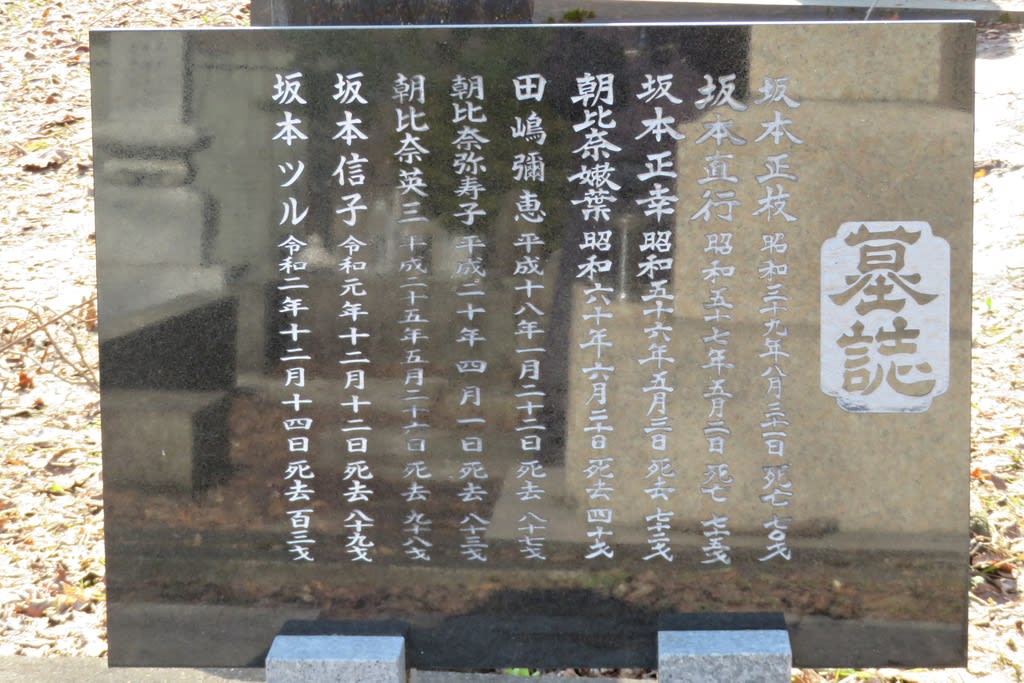 墓誌
坂本正枝 昭和三十九年八月三十一日 死亡 七〇才
坂本直行 昭和五十七年五月二日 死亡 七五才
坂本正幸 昭和五十六年五月三日 死去
朝比奈嫩葉 昭和六十年六月二十日 死去
田嶋彌恵 平成十八年一月二十二日 死去 八十七才
朝比奈弥寿子 平成二十年四月一日 死去 八十三才
朝比奈英三 平成二十五年五月二十六日 死去 九十八才
坂本信子 令和元年十二月十二日 死去 八十九才
坂本ツル 令和二年十二月十四日 死去 百三才